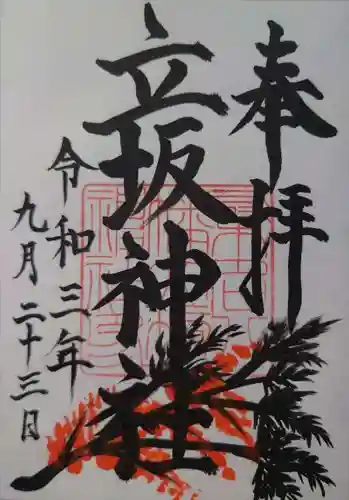 奉拝
立坂神社
令和三年
九月二十三日